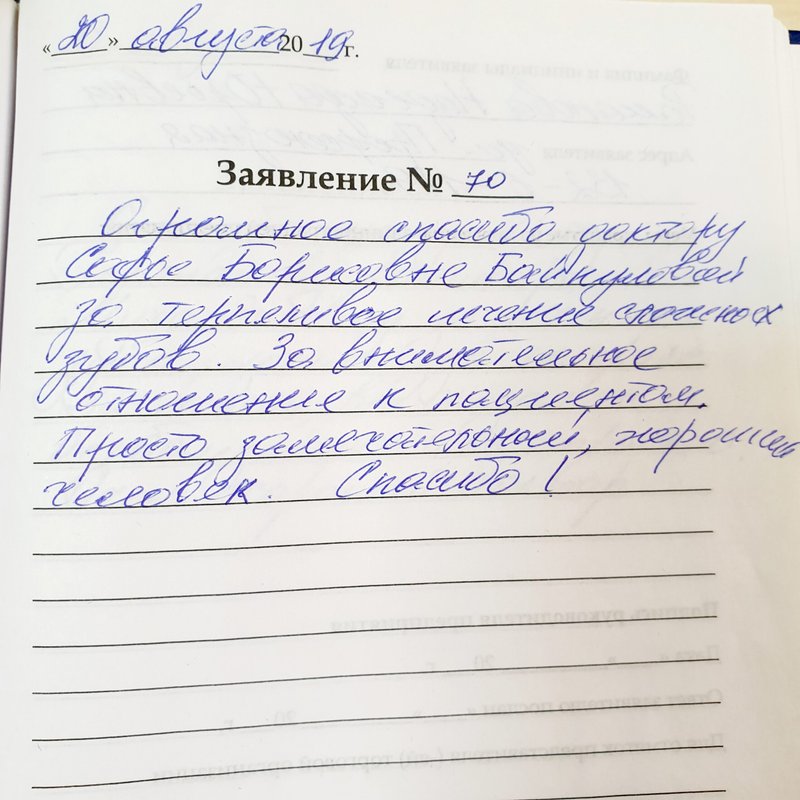 «20» августа 2019 г.
Заявление № 70
Огромное спасибо доктору
Софье Борисовне Байкуловой
за терпеливое лечение сложных
зубов. За внимательное
отношение к пациентам.
Просто замечательный, хороший
человек. Спасибо!
Подпись руководителя предприятия